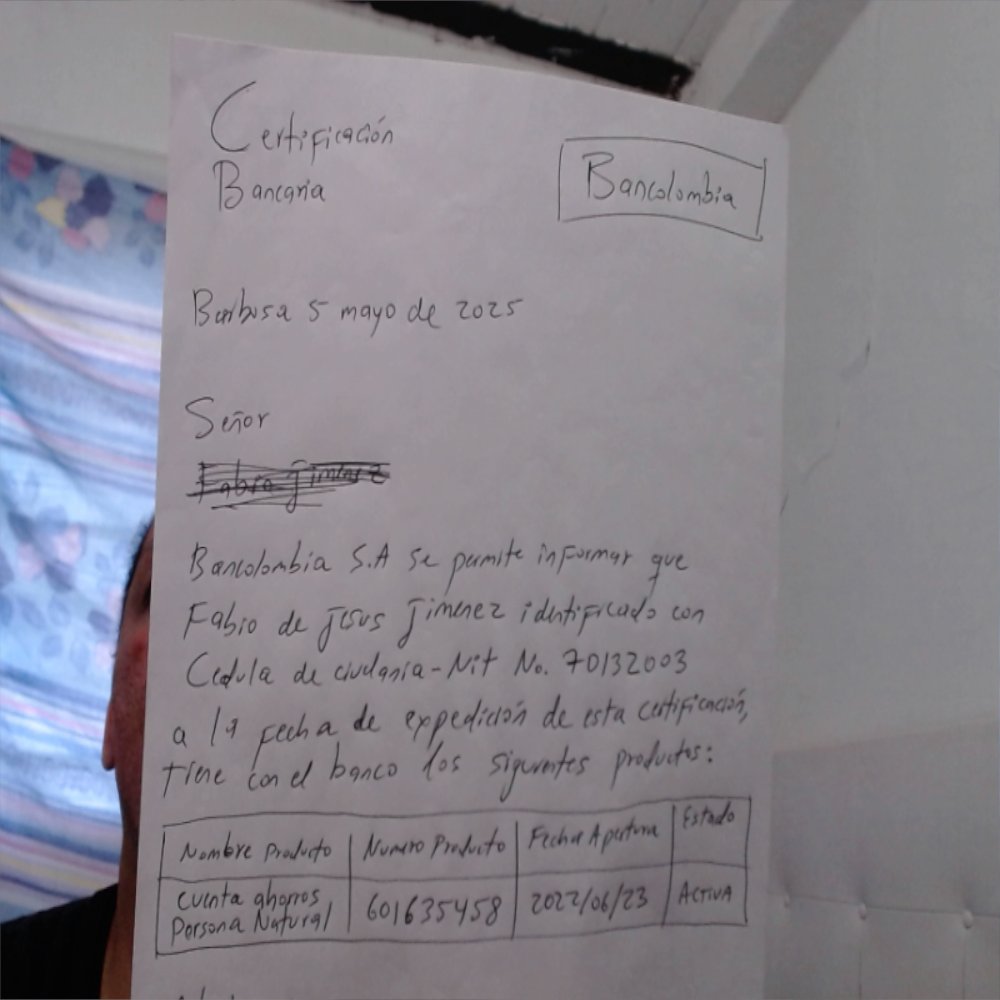 Certificación
Bancaria
Bancolombia
Barbosa 5 mayo de 2025
Señor
Fabio Jimenez
Bancolombia S.A se permite informar que
Fabio de Jesus Jimenez identificado con
Cedula de ciudania-Nit No. 70132003
a la fecha de expedición de esta certificación,
tiene con el banco los siguientes productos:
Nombre Producto Numero Producto Fecha Apertura Estado
Cuenta ahorros 601635458 2022/06/23 ACTIVA
Persona Natural